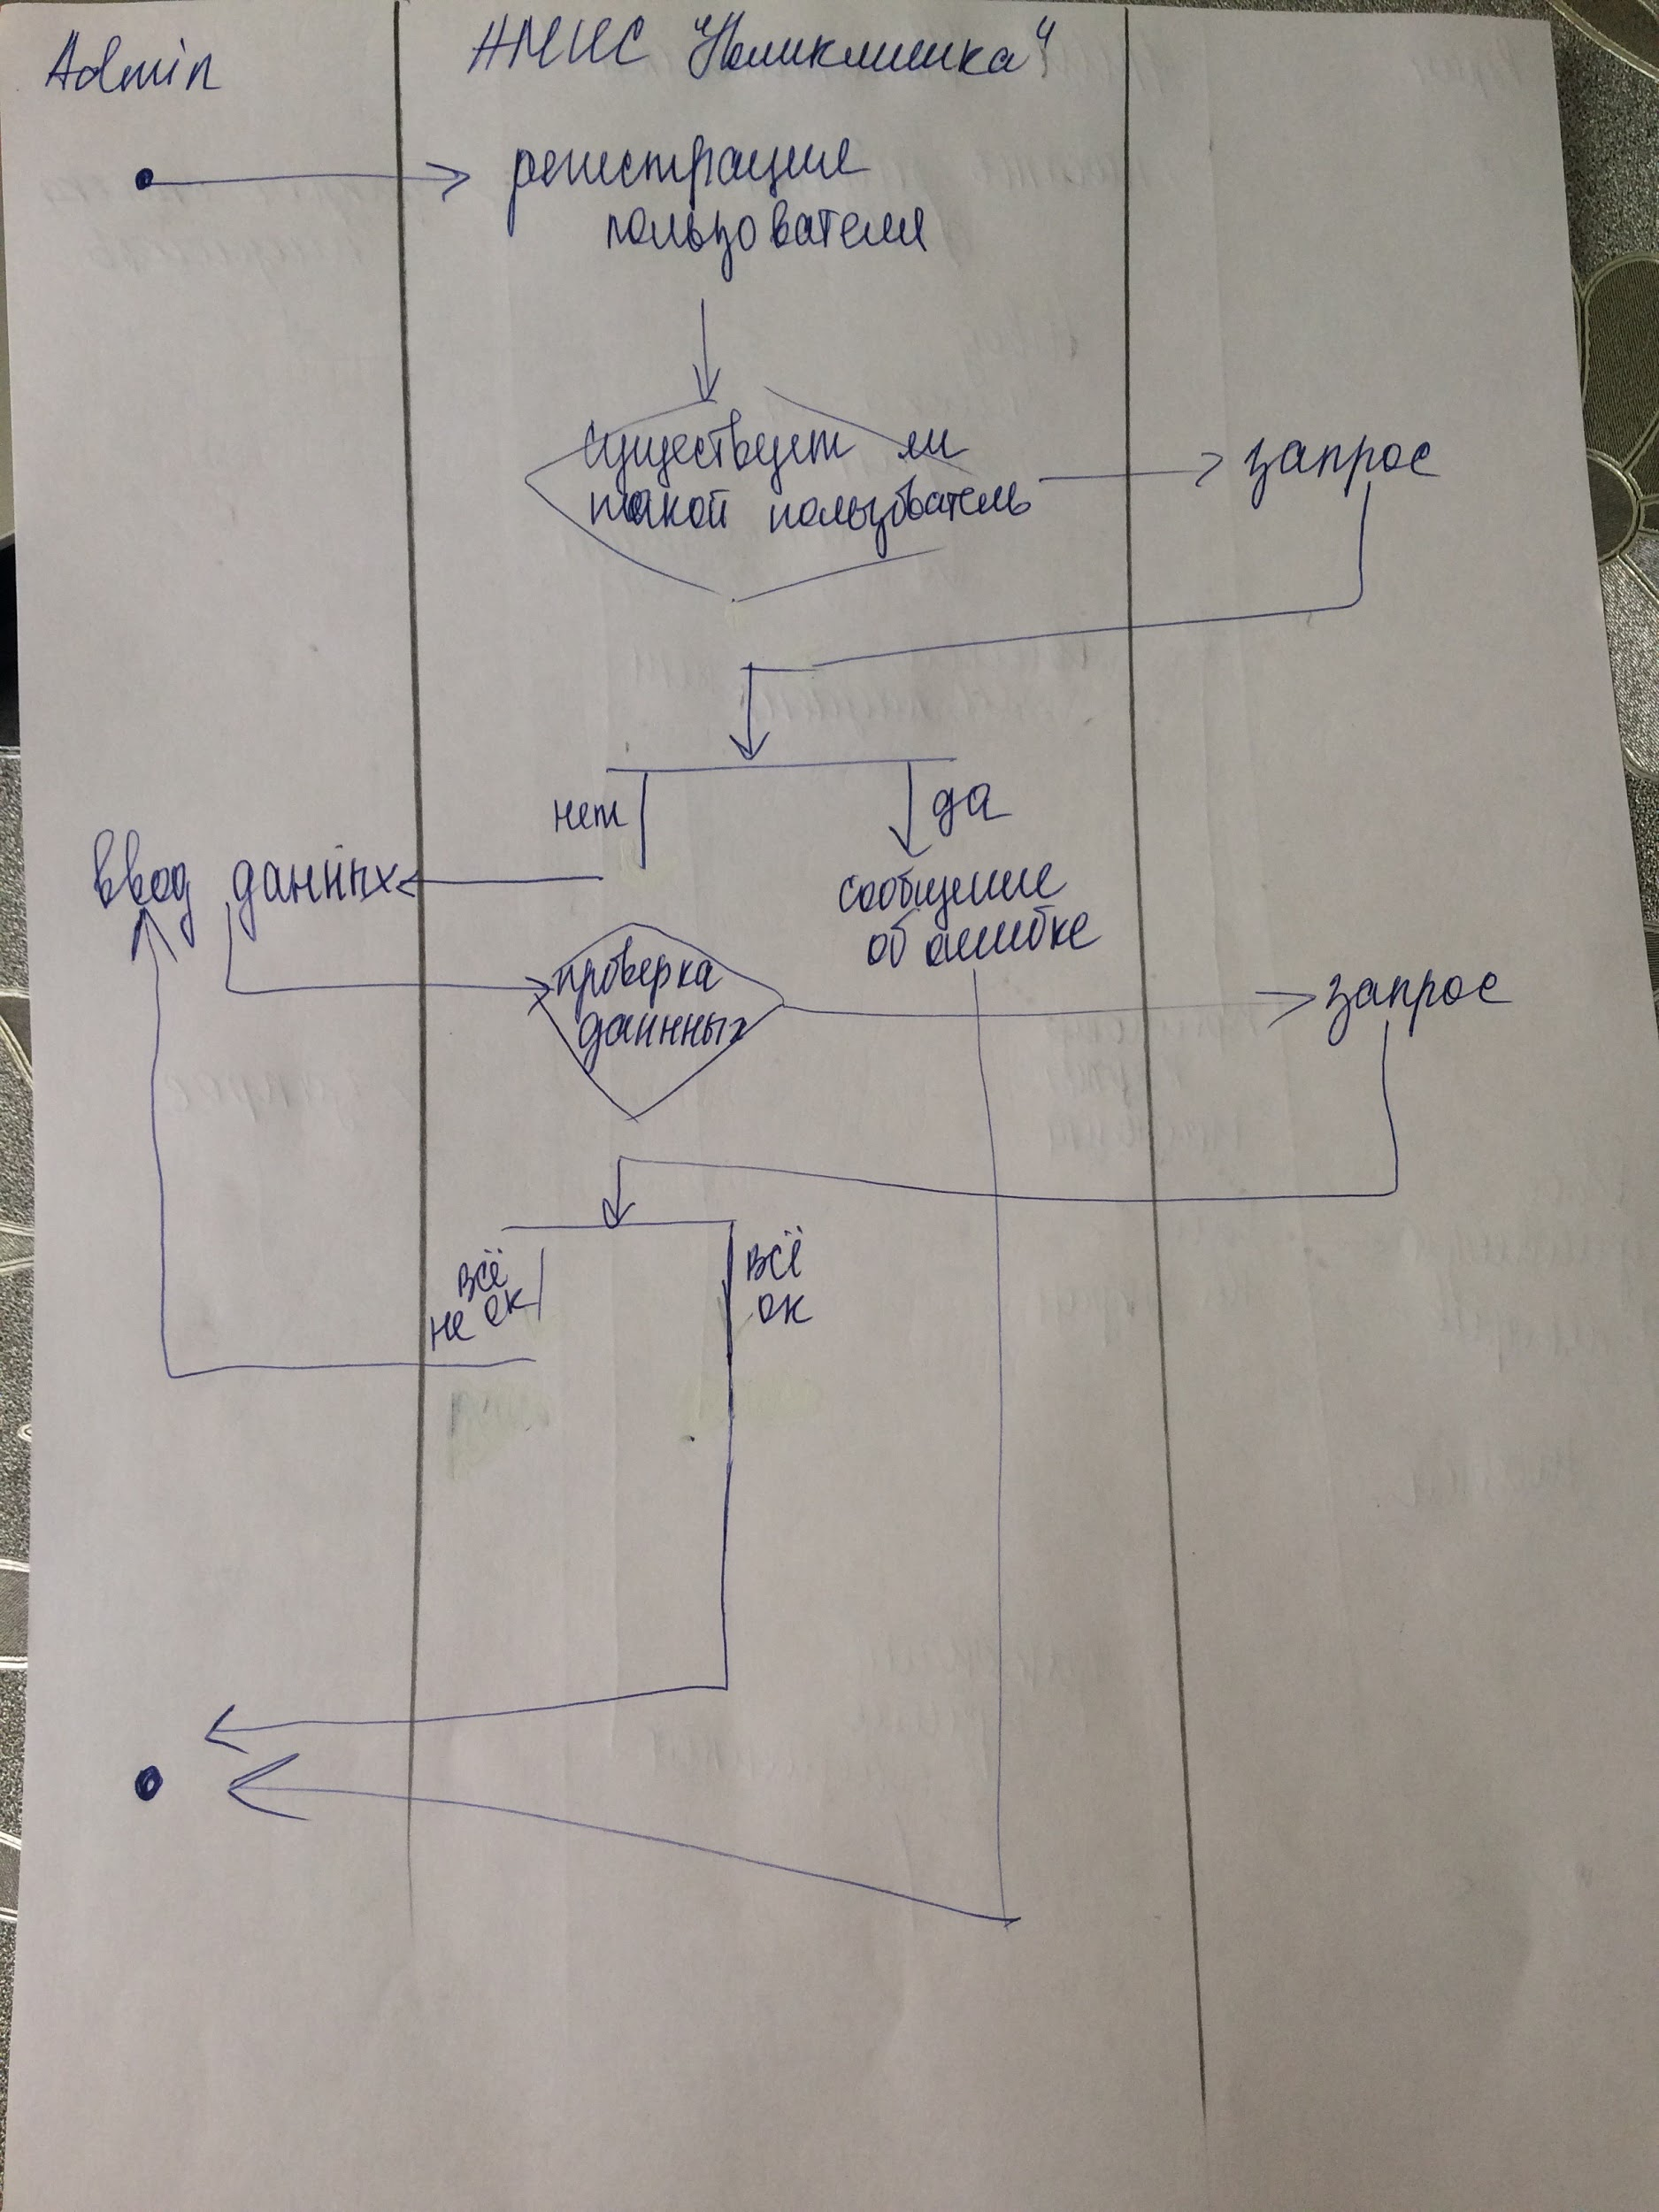 Admin
АМИС "Поликлиника"
регистрация
пользователя
существует ли
такой пользователь
запрос
нет
да
ввод данных
сообщение
об ошибке
проверка
даннных
запрос
всё
не ок
всё
ок